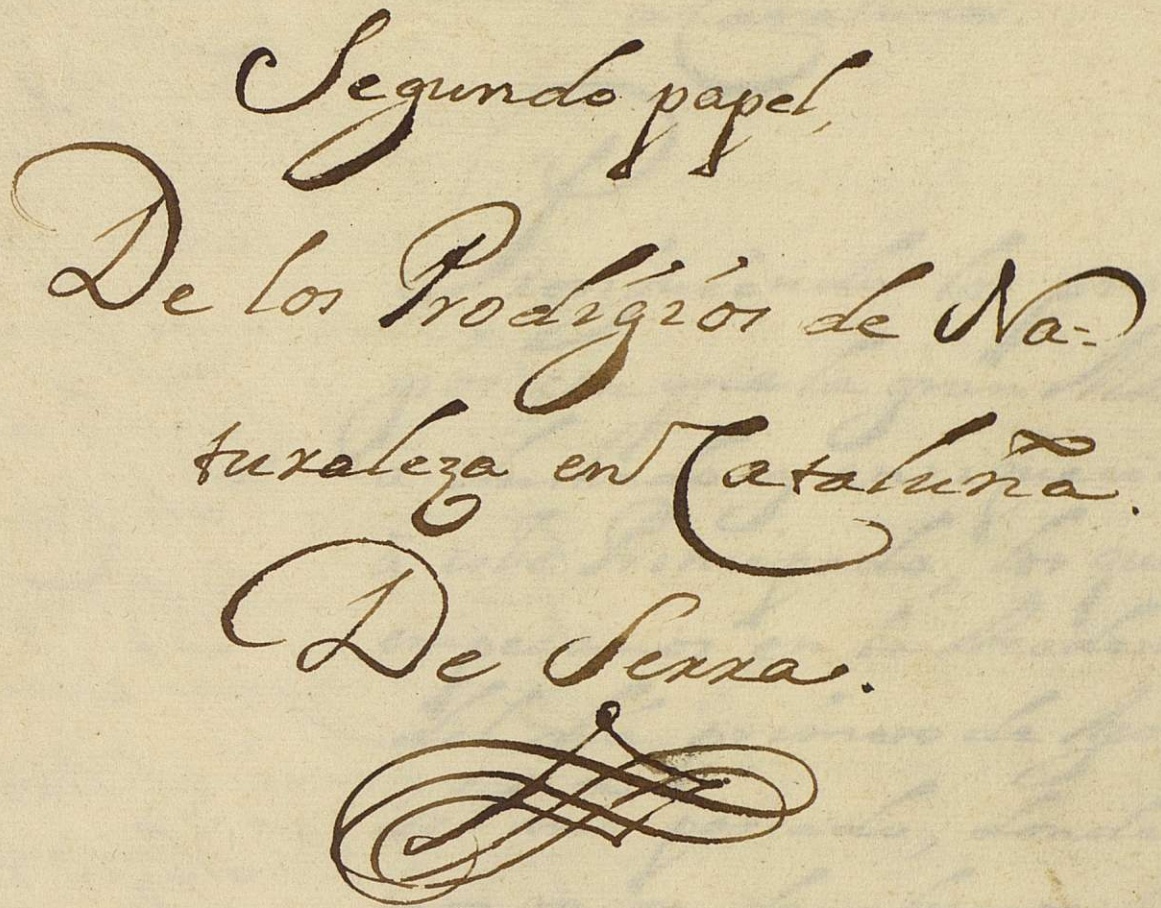 Segundo papel,
De los Prodigios de Na=
turaleza en Cataluña.
De Serra.